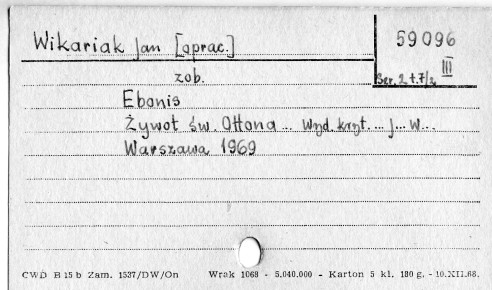 Wikariak Jan [oprac.]
59096
III
Ser. 2 t. 7/2
zob.
Ebonis
Żywot św. Ottona ... Wyd. kryt. ... J... W...
Warszawa 1969
CWD B 15 b Zam. 1537/DW/On Wrak 1068 - 5.040.000 - Karton 5 kl. 180 g. - 10.XII.68.